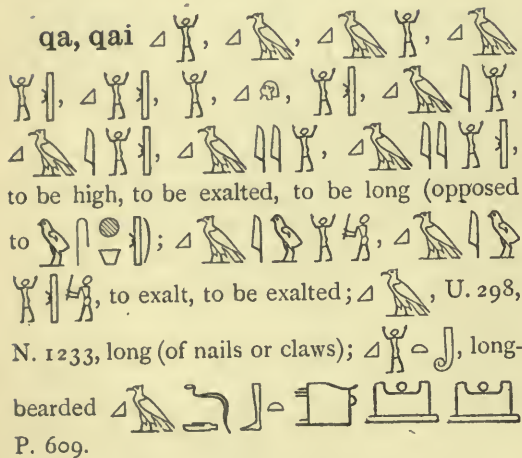 qa, qai 𓈎𓀠, 𓈎𓄿, 𓈎𓄿𓀠, 𓈎𓄿
𓀠𓏜, 𓈎𓀠𓏜, 𓀠, 𓈎, 𓀠𓏜, 𓈎𓄿𓇋𓀠,
𓈎𓄿𓇋𓀠𓏜, 𓈎𓄿𓇋𓇋𓀠, 𓈎𓄿𓇋𓇋𓀠𓏜,
to be high, to be exalted, to be long (opposed
to 𓅱𓋴𓐍𓏜); 𓈎𓄿𓇋𓅱𓀠𓀜, 𓈎𓄿𓇋𓅱
𓀠𓏜𓀜, to exalt, to be exalted; 𓈎𓄿, U. 298,
N. 1233, long (of nails or claws); 𓈎𓀠𓏏𓍢, long-
bearded 𓈎𓄿𓆓𓃀𓏏
P. 609.